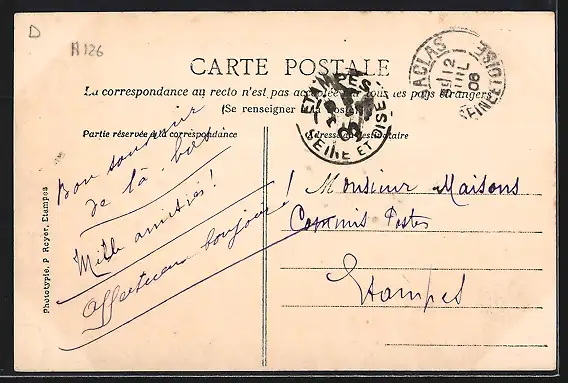 D
A126
CARTE POSTALE
La correspondance au recto n'est pas acceptée par tous les pays étrangers
(Se renseigner à la Poste)
Partie réservée à la correspondance
Adresse du destinataire
ETAMPES
SEINE ET OISE
MACLAS
12
08
SEINE ET OISE
Bon souvenir
de là-bas
Mille amitiés!
Affectueux bonjour!
Monsieur Maisons
Commis Postes
Etampes
Phototypie. P Royer, Etampes